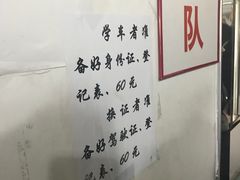 学车者准
备好身份证、登
记表、60元
换证者准
备好驾驶证、登
记表、60元
队